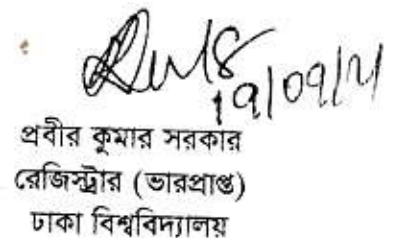 19/09/21
প্রবীর কুমার সরকার
রেজিস্ট্রার (ভারপ্রাপ্ত)
ঢাকা বিশ্ববিদ্যালয়